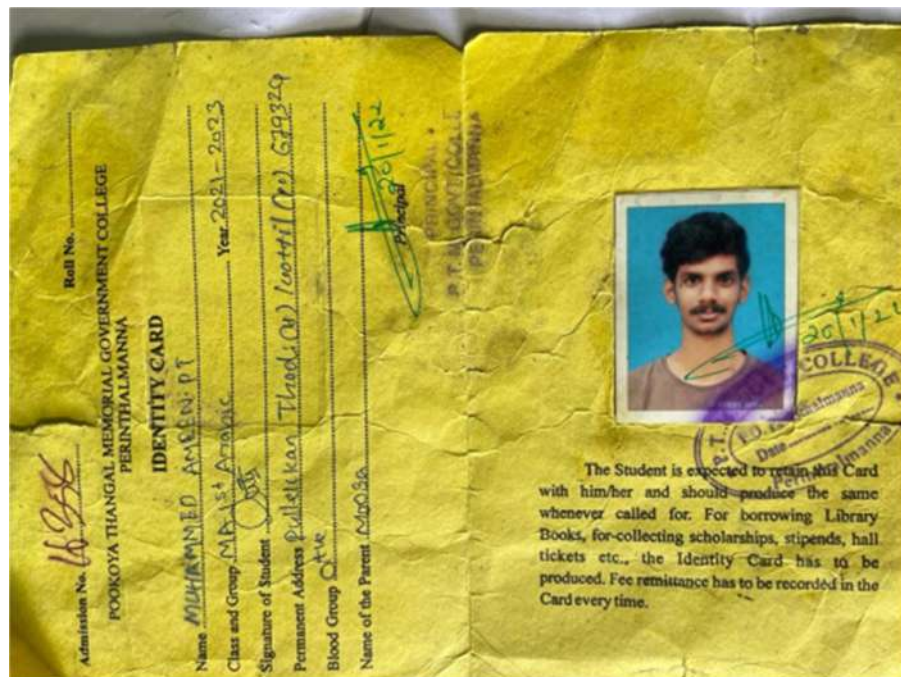 Admission No. 16358 Roll No.
POOKOYA THANGAL MEMORIAL GOVERNMENT COLLEGE
PERINTHALMANNA
IDENTITY CARD
Name MUHAMMED AMEEN. PT
Class and Group MA 1st Arabic Year 2021-2023
Signature of Student
Permanent Address Thodi (H) (Po) 679324
Blood Group O+ve
Name of the Parent Moosa
20/1/22
Principal
PRINCIPAL
P.T.M GOVT COLLEGE
PERINTHALMANNA
20/1/22
COLLEGE
P.T.
P.O. Perinthalmanna
Date
Perinthalmanna
The Student is expected to retain this Card
with him/her and should produce the same
whenever called for. For borrowing Library
Books, for collecting scholarships, stipends, hall
tickets etc., the Identity Card has to be
produced. Fee remittance has to be recorded in the
Card every time.